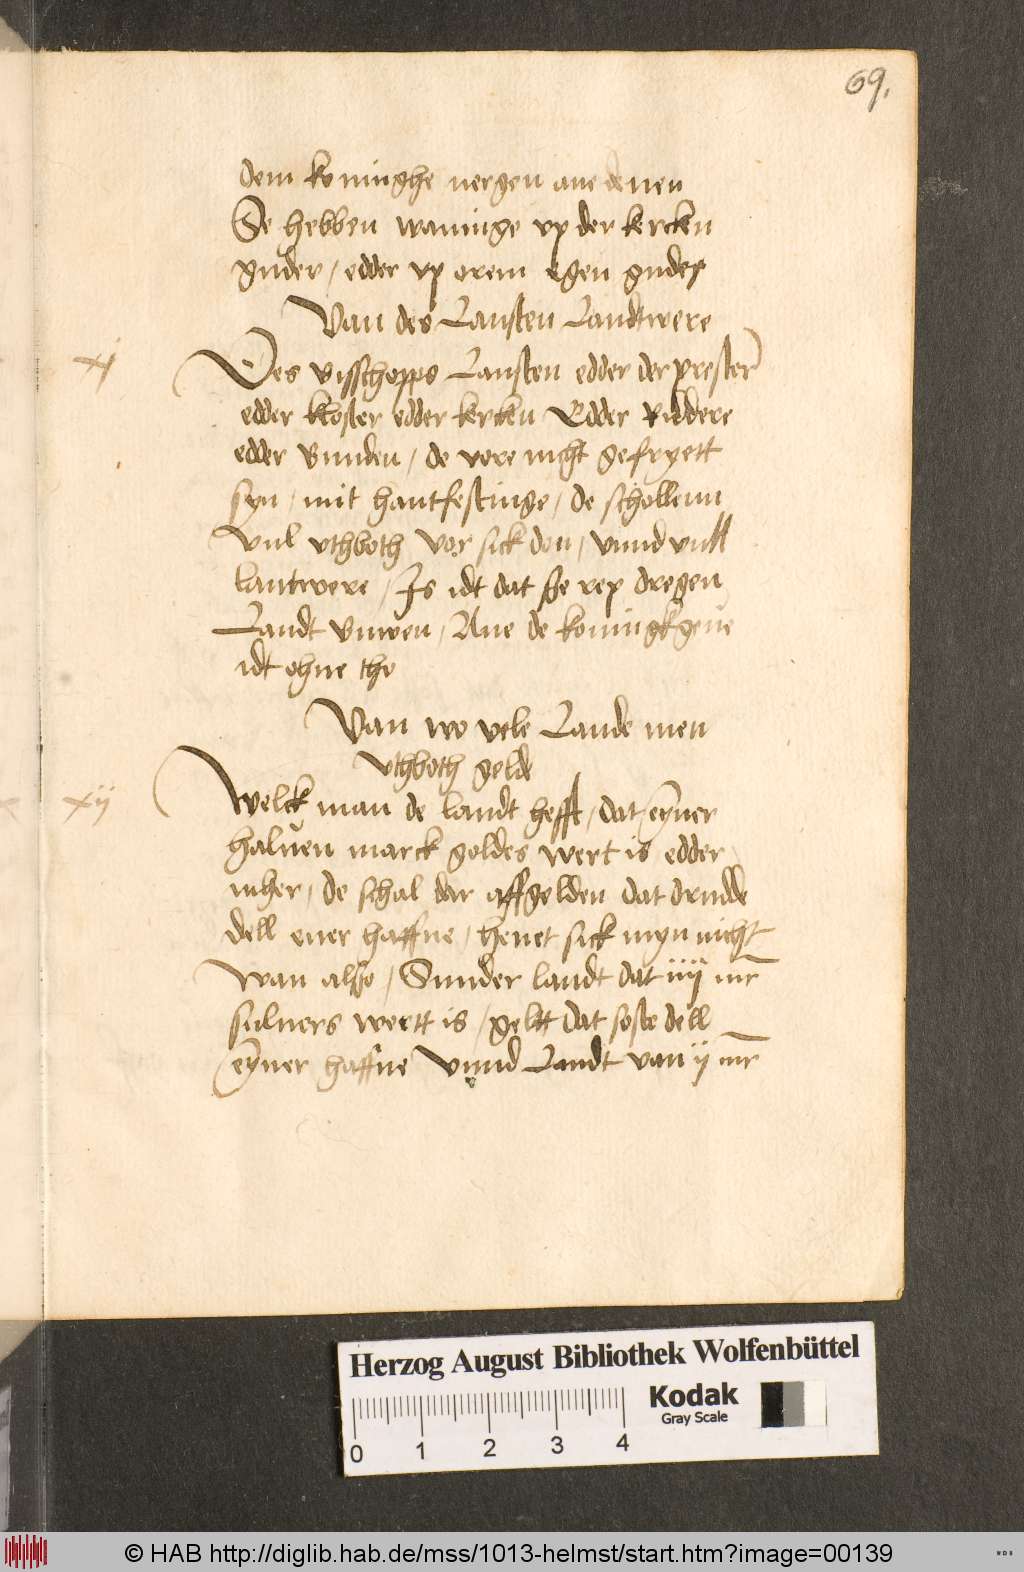 69.
dem koninghe nergen ane denen
Se hebben waninge vp der kercken
guder / edder vp orem egen gudes
Van des Lansten Landtwere
xj
Des bisschopps Lansten edder der prester
edder kloster edder kercken Edder Riddere
edder Bunden / de vore nicht gefryett
syn / mit hantfestinge / de schollenn
vul vthboth vor sick don / vnnd vull
lantwere / Is idt dat sße rep dregen
Landt buwen / Ane de koningk geue
idt ohne tho
Van wo vele Lande men
vthboth gelde
xij
Welck man de landt hefft / dat eyner
haluen marck goldes wert is edder
mher / de schal dar affgelden dat drudde
dell ener haffne / heuet sick myn nicht
wan also / Sunder landt dat iiij mr
suluers wertt is / geltt dat soste dell
eyner haffne Vnnd Landt van ij mr
Herzog August Bibliothek Wolfenbüttel
Kodak
Gray Scale
0 1 2 3 4
© HAB http://diglib.hab.de/mss/1013-helmst/start.htm?image=00139